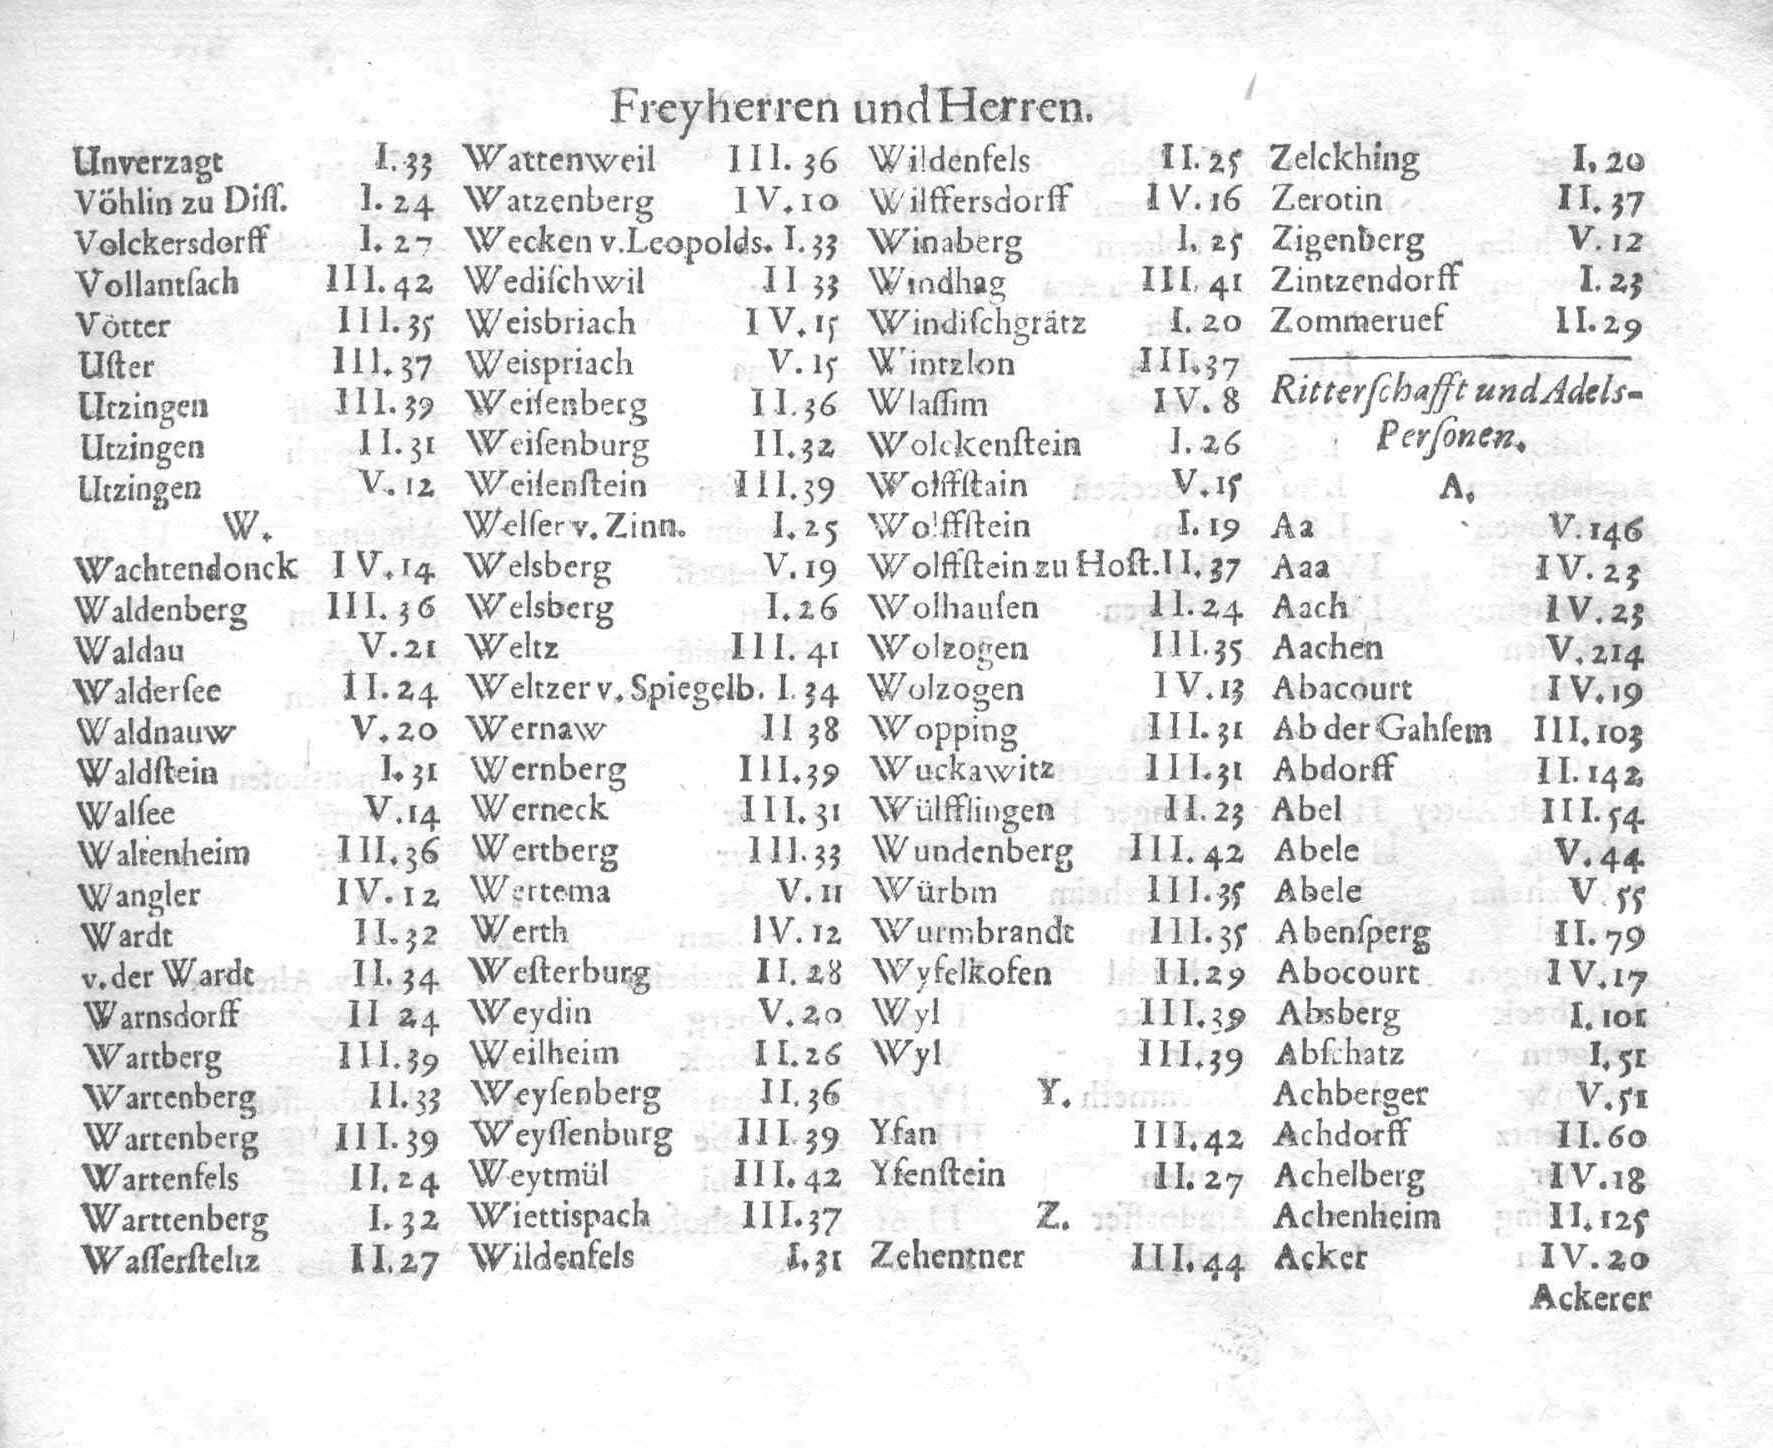 Freyherren und Herren.
Unverzagt I.33
Vöhlin zu Diſſ. I.24
Volckersdorff I.27
Vollantſach III.42
Vötter III.35
Uſter III.37
Utzingen III.39
Utzingen II.31
Utzingen V.12
W.
Wachtendonck IV.14
Waldenberg III.36
Waldau V.21
Walderſee II.24
Waldnauw V.20
Waldſtein I.31
Walſee V.14
Waltenheim III.36
Wangler IV.12
Wardt II.32
v.der Wardt II.34
Warnsdorff II 24
Wartberg III.39
Wartenberg II.33
Wartenberg III.39
Wartenfels II.24
Warttenberg I.32
Waſſerſteltz II.27
Wattenweil III.36
Watzenberg IV.10
Wecken v.Leopolds. I.33
Wediſchwil II 33
Weisbriach IV.15
Weispriach V.15
Weiſenberg II.36
Weiſenburg II.32
Weiſenſtein III.39
Welſer v. Zinn. I.25
Welsberg V.19
Welsberg I.26
Weltz III.41
Weltzer v. Spiegelb. I.34
Wernaw II 38
Wernberg III.39
Werneck III.31
Wertberg III.33
Wertema V.11
Werth IV.12
Weſterburg II.28
Weydin V.20
Weilheim II.26
Weyſenberg II.36
Weyſſenburg III.39
Weytmül III.42
Wiettispach III.37
Wildenfels I.31
Wildenfels II.25
Wilffersdorff IV.16
Winaberg I.25
Windhag III.41
Windiſchgrätz I.20
Wintzlon III.37
Wlaſſim IV.8
Wolckenſtein I.26
Wolffſtain V.15
Wolffſtein I.19
Wolffſtein zu Hoft. II.37
Wolhauſen II.24
Wolzogen III.35
Wolzogen IV.13
Wopping III.31
Wuckawitz III.31
Wülfflingen II.23
Wundenberg III.42
Würbm III.35
Wurmbrandt III.35
Wyfelkofen II.29
Wyl III.39
Wyl III.39
Y.
Yſan III.42
Yſenſtein II.27
Z.
Zehentner III.44
Zelckhing I.20
Zerotin II.37
Zigenberg V.12
Zintzendorff I.23
Zommeruef II.29
Ritterſchafft und Adels-
Perſonen.
A.
Aa V.146
Aaa IV.23
Aach IV.23
Aachen V.214
Abacourt IV.19
Ab der Gahſem III.103
Abdorff II.142
Abel III.54
Abele V.44
Abele V.55
Abenſperg II.79
Abocourt IV.17
Absberg I.101
Abſchatz I.51
Achberger V.51
Achdorff II.60
Achelberg IV.18
Achenheim II.125
Acker IV.20
Ackerer